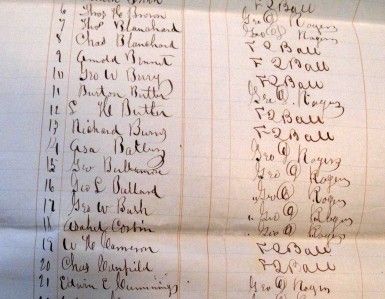 6 Thos H Brown F Q Ball
7 Thos Blanchard Geo Q Rogers
8 Chas Blanchard Geo Q Rogers
9 Arnold F Q Ball
10 Geo W Berry F Q Ball
11 Burton Butler Geo Q Rogers
12 S H Butler F Q Ball
13 Richard Burns F Q Ball
14 Asa Geo Q Rogers
15 Geo Geo Q Rogers
16 Geo L Ballard Geo Q Rogers
17 Geo W Bush Geo Q Rogers
18 Geo Q Rogers
19 W H Cameron F Q Ball
20 Chas F Q Ball
21 Edwin E Cummings Geo Q Rogers